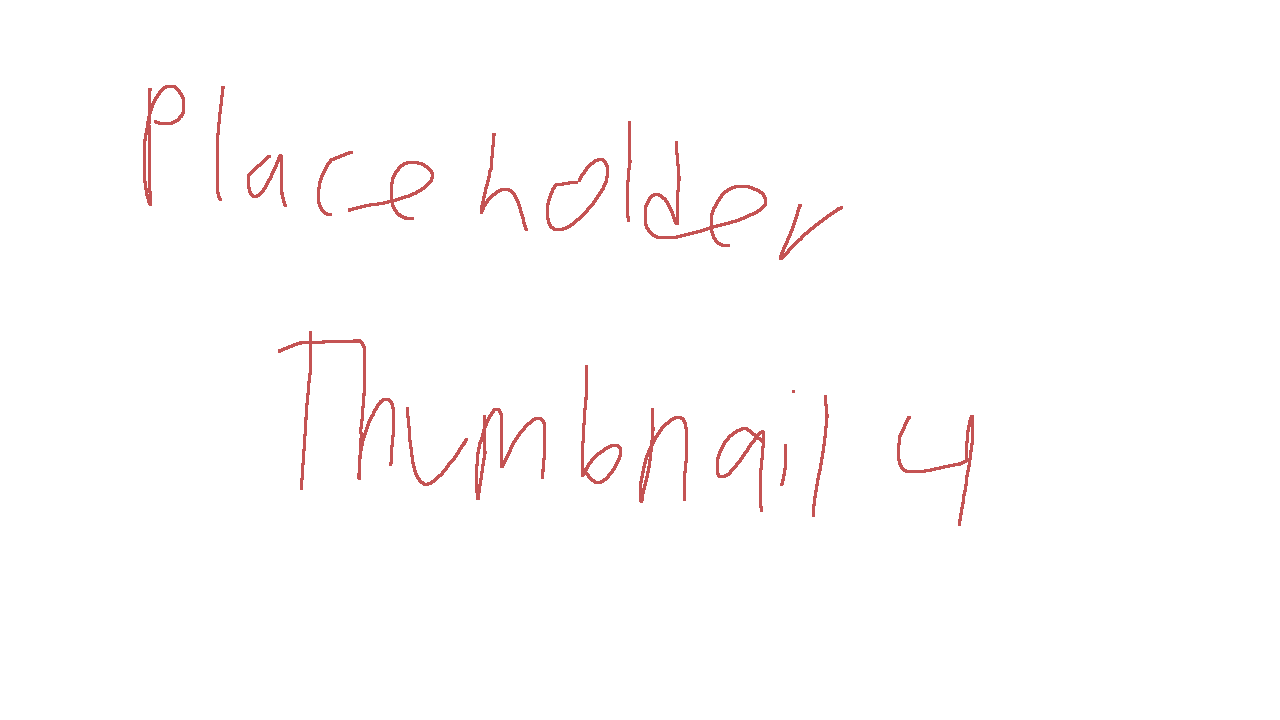 Placeholder
Thumbnail 4